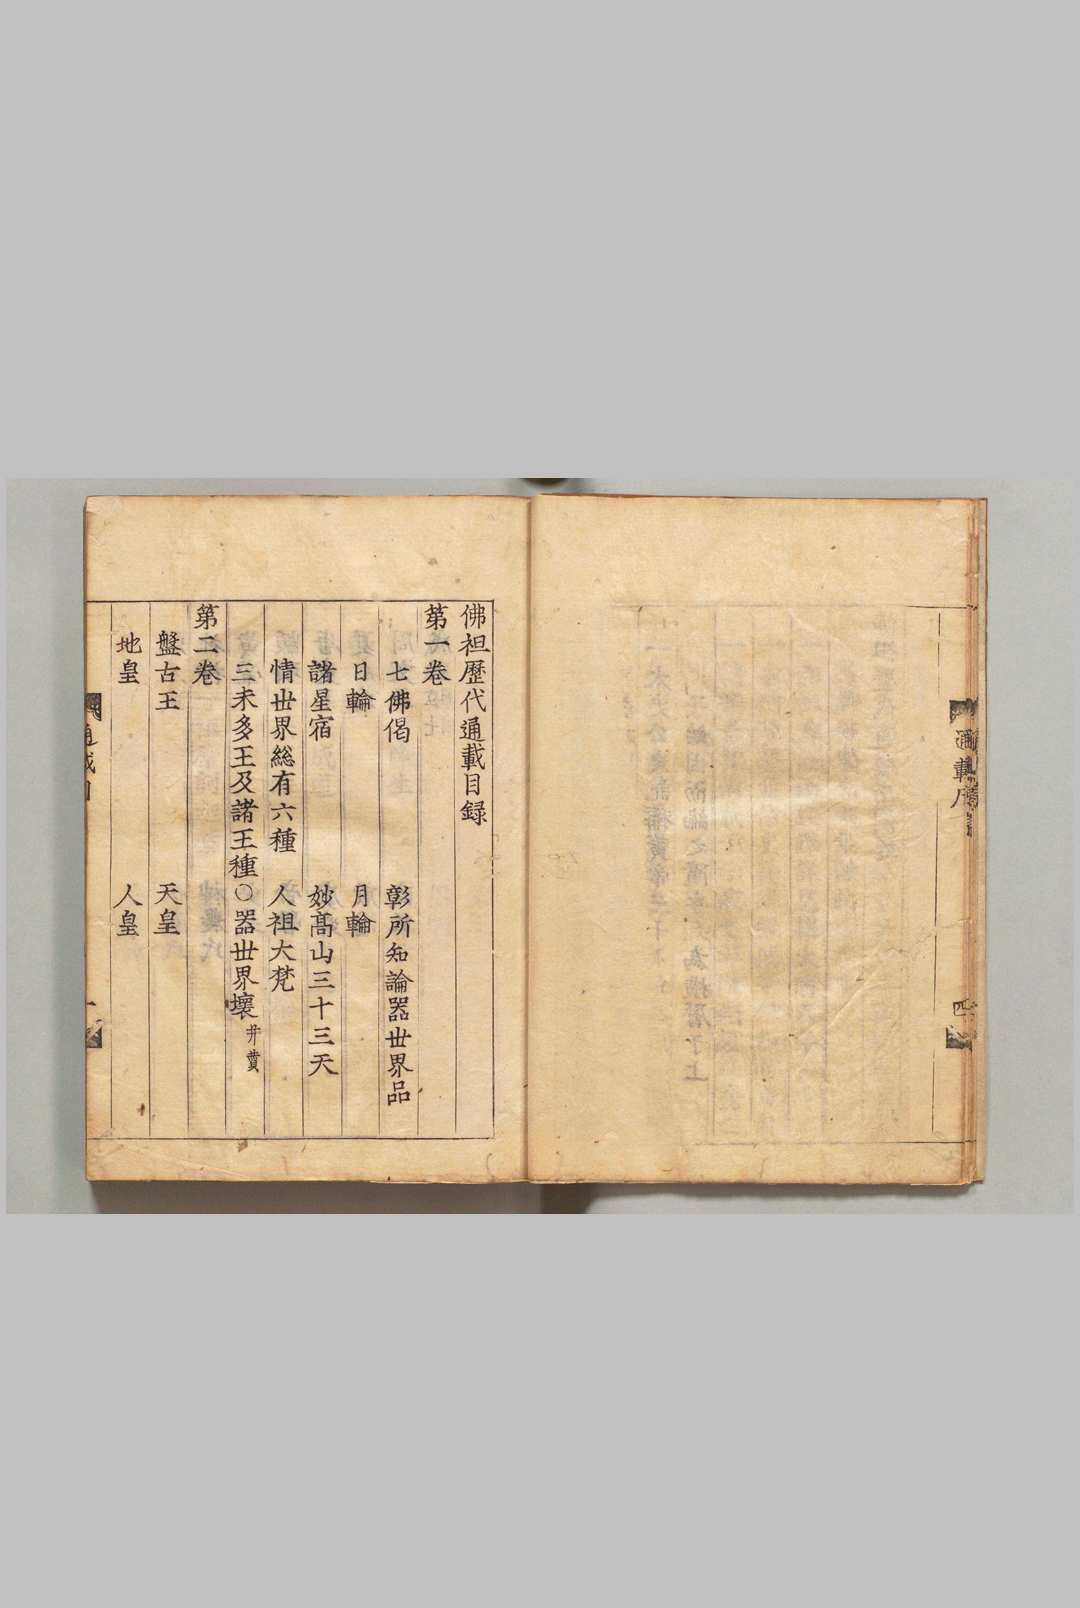 佛祖歷代通載目録
第一卷
七佛偈　彰所知論器世界品
日輪　月輪
諸星宿　妙髙山三十三天
情世界総有六種　人祖大梵
三末多王及諸王種○器世界壞
第二卷
盤古王　天皇
地皇　人皇
通載